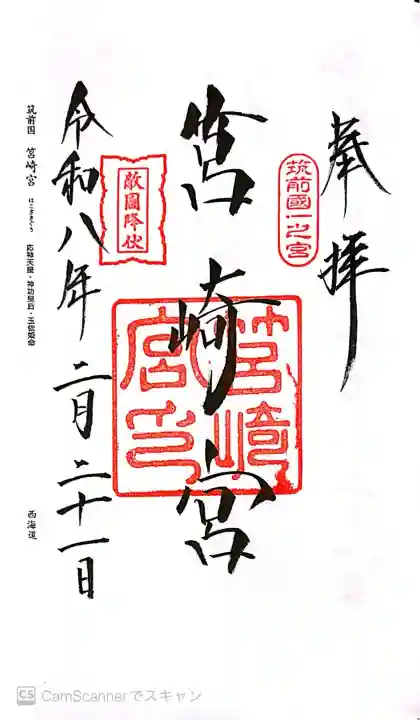 奉拝
筑前國一之宮
筥崎宮
筥崎宮印
敵國降伏
令和八年二月二十一日
筑前国 筥崎宮 はこざきぐう 応神天皇・神功皇后・玉依姫命 西海道
CS CamScannerでスキャン